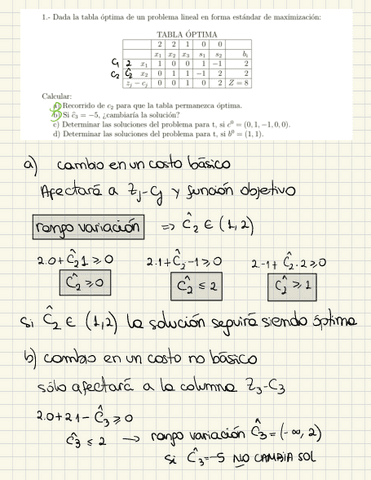 1.- Dada la tabla óptima de un problema lineal en forma estándar de maximización:
TABLA ÓPTIMA
2 2 1 0 0
x₁ x₂ x₃ s₁ s₂ bᵢ
C₁ 2 x₁ 1 0 0 1 −1 2
C₂ Ĉ₂ x₂ 0 1 1 −1 2 2
zⱼ − cⱼ 0 0 1 0 2 Z = 8
Calcular:
a) Recorrido de c₂ para que la tabla permanezca óptima.
b) Si ĉ₃ = −5, ¿cambiaría la solución?
c) Determinar las soluciones del problema para t, si c⁰ = (0, 1, −1, 0, 0).
d) Determinar las soluciones del problema para t, si b⁰ = (1, 1).
a) cambio en un costo básico
Afectará a Zj-Cj y función objetivo
rango variación => Ĉ₂ ∈ (1,2)
2.0+Ĉ₂1 ≥ 0 2·1+Ĉ₂-1 ≥ 0 2·-1+Ĉ₂·2 ≥ 0
Ĉ₂ ≥ 0 Ĉ₂ ≤ 2 Ĉ₂ ≥ 1
Si Ĉ₂ ∈ (1,2) la solución seguirá siendo óptima
b) cambio en un costo no básico
sólo afectará a la columna Z₃-C₃
2.0+2 1- Ĉ₃ ≥ 0
Ĉ₃ ≤ 2 → rango variación Ĉ₃ = (-∞, 2)
si Ĉ₃=-5 NO CAMBIA SOL